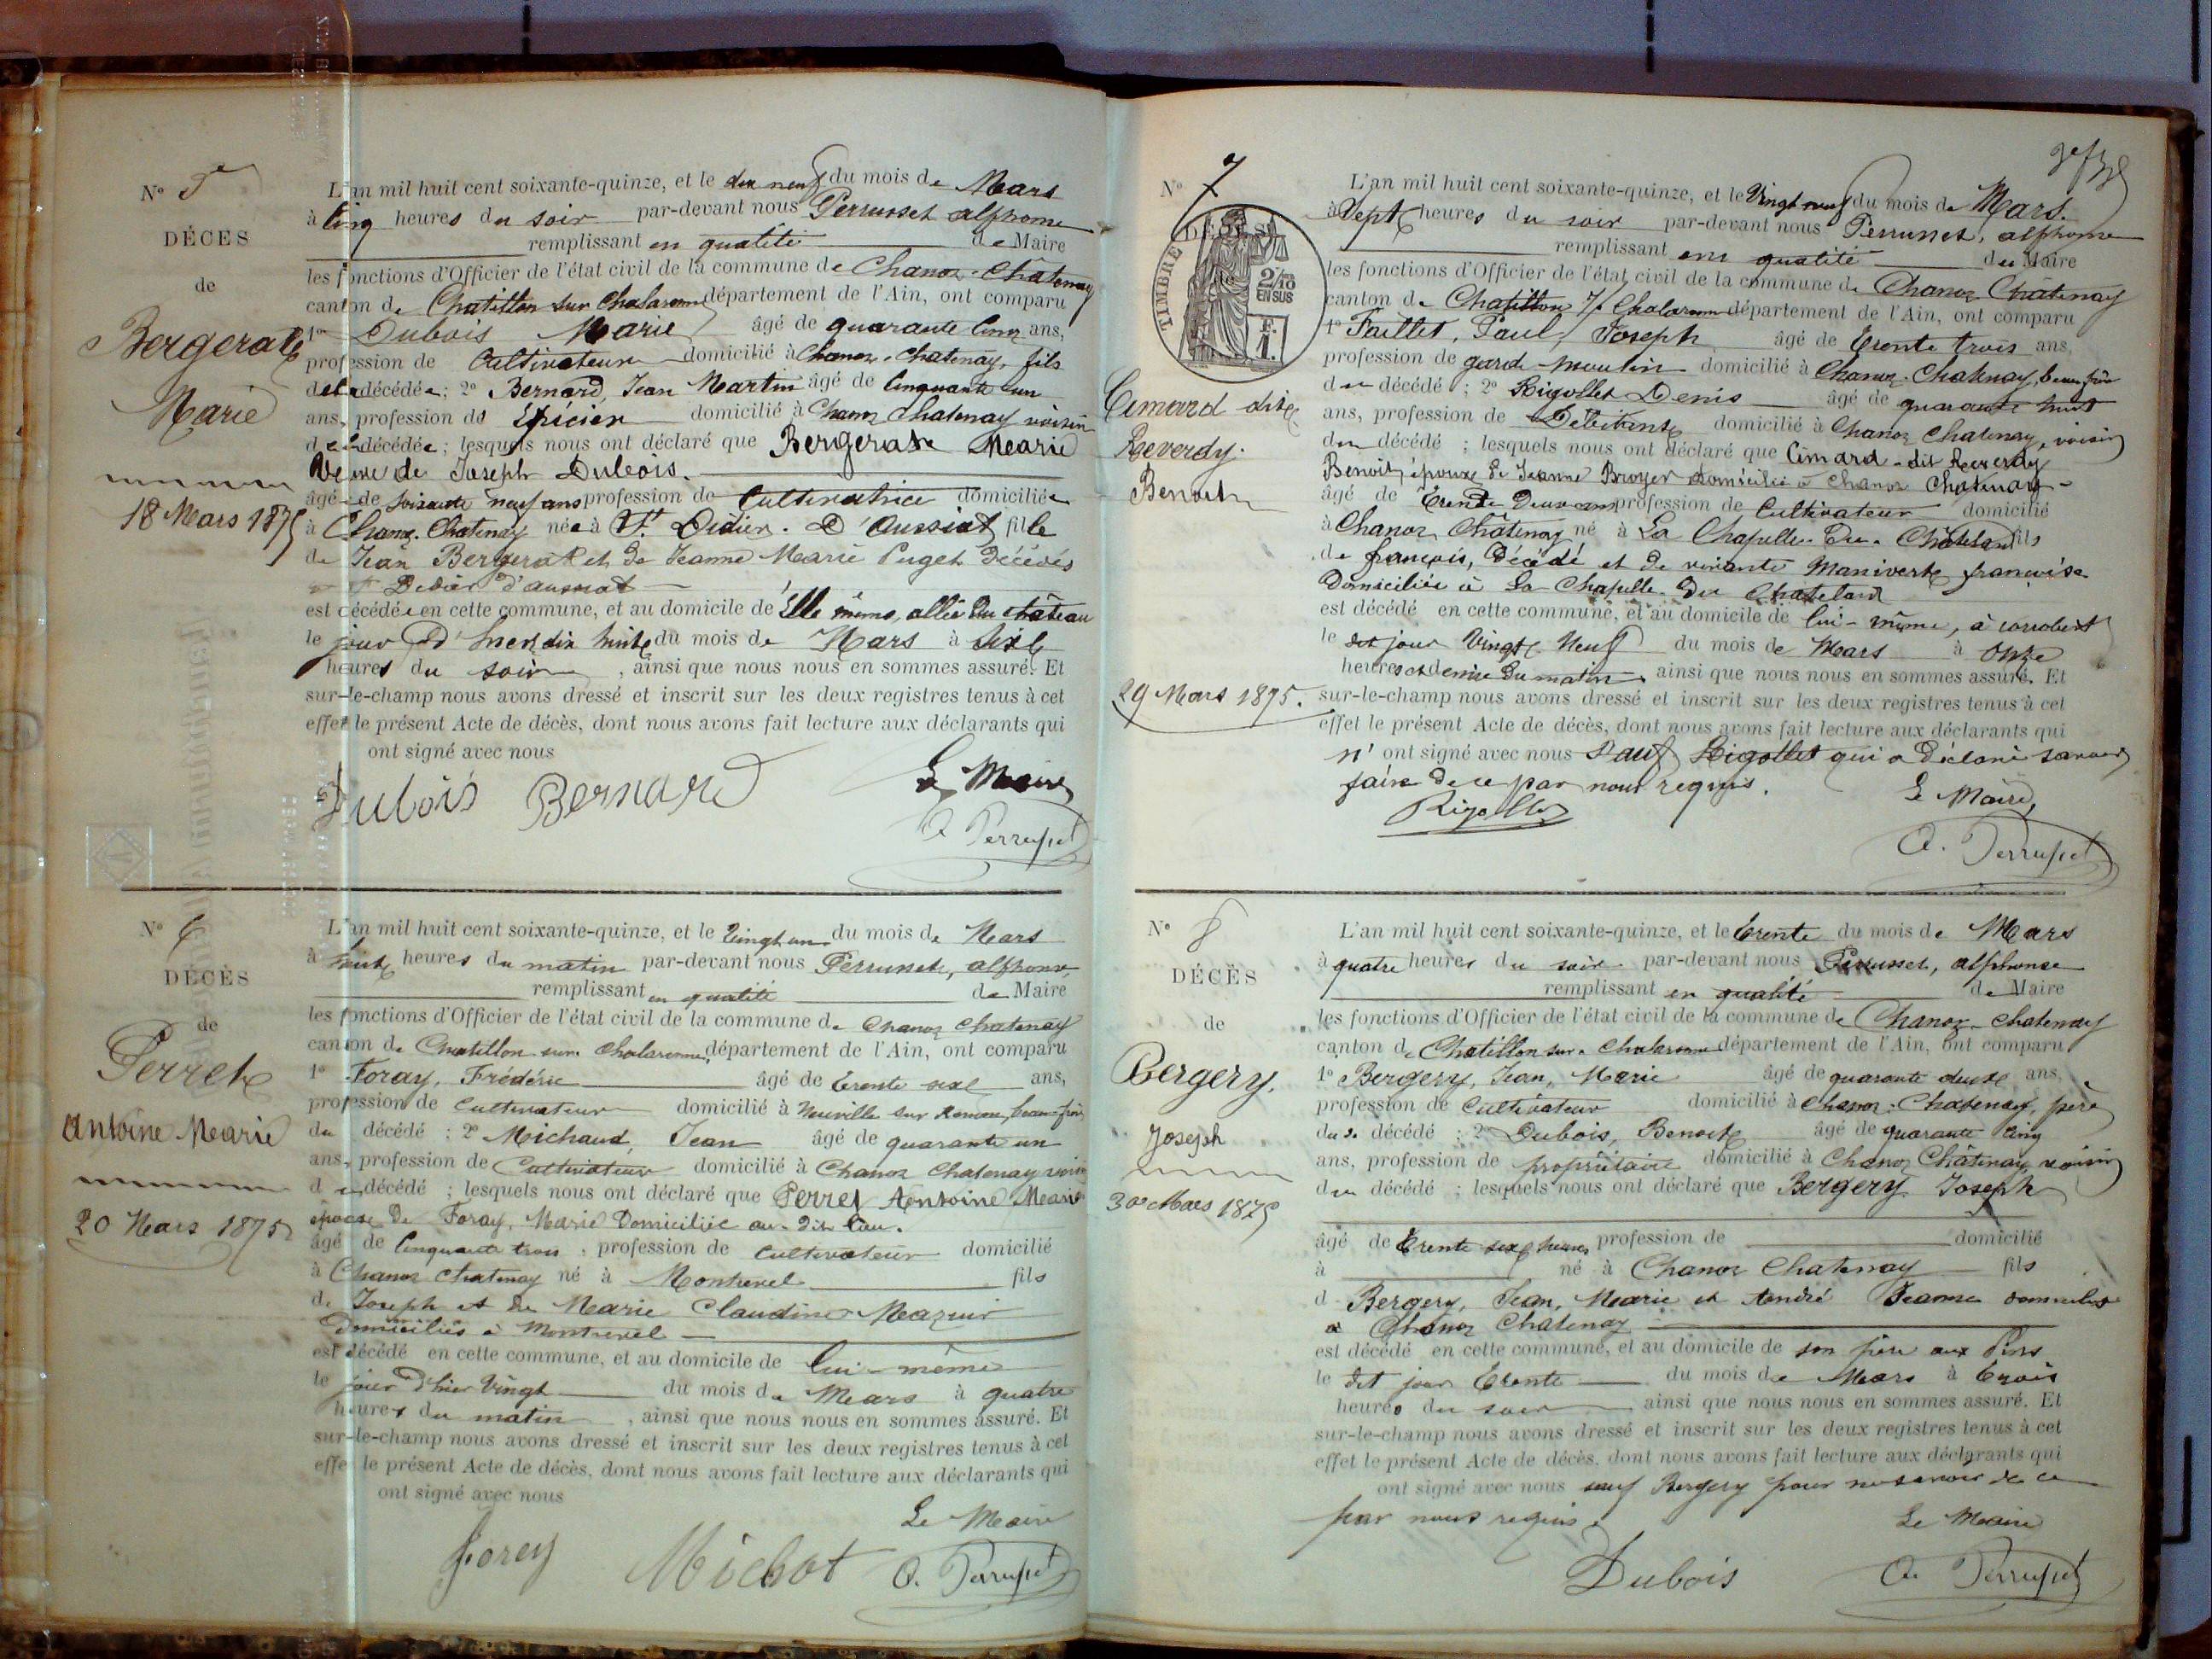 N° 5
DÉCES
de
Bergerat
Marie
18 Mars 1875
L'an mil huit cent soixante-quinze, et le dix neuf du mois de Mars
à Cinq heures du soir par-devant nous Perrusset alphonse
remplissant en qualité de Maire
les fonctions d'Officier de l'état civil de la commune de Chanoz-Châtenay
canton de Chatillon sur Chalaronne département de l'Ain, ont comparu
1° Dubois Marie âgé de quarante Cinq ans,
profession de Cultivateur domicilié à Chanoz-Chatenay, fils
de la décédée; 2° Bernard, Jean Martin âgé de Cinquante un
ans, profession de Épicier domicilié à Chanoz Chatenay voisin
de la décédée; lesquels nous ont déclaré que Bergerat Marie
Veuve de Joseph Dubois.
âgée de soixante neuf ans profession de Cultivatrice domiciliée
à Chanoz-Chatenay née à St. Didier. D'Aussiat fille
de Jean Bergerat et de Jeanne Marie Puget Décédés
a St Didier d'aussiat
est décédée en cette commune, et au domicile de Elle même, allée du château
le jour d'hier dix huit du mois de Mars à Six
heures du soir, ainsi que nous nous en sommes assuré. Et
sur-le-champ nous avons dressé et inscrit sur les deux registres tenus à cet
effet le présent Acte de décès, dont nous avons fait lecture aux déclarants qui
ont signé avec nous
Le Maire
Dubois Bernard
A. Perrusset
N° 6
DÉCÈS
de
Perret
Antoine Marie
20 Mars 1875
L'an mil huit cent soixante-quinze, et le Vingt un du mois de Mars
à huit heures du matin par-devant nous Perrusset, alphonse
remplissant en qualité de Maire
les fonctions d'Officier de l'état civil de la commune de Chanoz Chatenay
canton de Chatillon sur Chalaronne, département de l'Ain, ont comparu
1° Foray, Frédéric âgé de trente six ans,
profession de Cultivateur domicilié à Neuville sur Renom, beau-frère
du décédé; 2° Michaud, Jean âgé de quarante un
ans, profession de Cultivateur domicilié à Chanoz Chatenay voisin
du décédé; lesquels nous ont déclaré que Perret Antoine Marie
epoux De Foray, Marie Domiciliée au dit lieu.
âgé de Cinquante trois, profession de Cultivateur domicilié
à Chanoz Chatenay né à Montrevel fils
de Joseph et de Marie Claudine Mazuir
Domiciliés à Montrevel
est décédé en cette commune, et au domicile de lui-même
le jour d'hier Vingt du mois de Mars à quatre
heures du matin, ainsi que nous nous en sommes assuré. Et
sur-le-champ nous avons dressé et inscrit sur les deux registres tenus à cet
effet le présent Acte de décès, dont nous avons fait lecture aux déclarants qui
ont signé avec nous
Le Maire
forey Michot A. Perrusset
N° 7
TIMBRE
2/10
EN SUS
F.
1.
Cimard dit
Reverdy.
Benoit
29 Mars 1875.
L'an mil huit cent soixante-quinze, et le Vingt neuf du mois de Mars.
à Sept heures du soir par-devant nous Perrusset, alphonse
remplissant en qualité du Maire
les fonctions d'Officier de l'état civil de la commune de Chanoz Chatenay
canton de Chatillon s/ Chalaronne département de l'Ain, ont comparu
1° Faillet, Paul, Joseph âgé de trente trois ans,
profession de gard-moulin domicilié à Chanoz-Chatenay, beau frère
du décédé; 2° Rigollet Denis âgé de quarante huit
ans, profession de Débitant domicilié à Chanoz Chatenay, voisin
du décédé; lesquels nous ont déclaré que Cimard-dit Reverdy
Benoit, époux de Jeanne Broyer domiciliée à Chanoz Chatenay-
âgé de trente Deux ans profession de Cultivateur domicilié
à Chanoz Châtenay né à La Chapelle-Du-Châtelard fils
de françois, Décédé et de vivante Manivert françoise
Domiciliée à La Chapelle-Du Chatelard
est décédé en cette commune, et au domicile de lui-même, à
le dit jour Vingt Neuf du mois de Mars à Onze
heures et demie du matin, ainsi que nous nous en sommes assuré. Et
sur-le-champ nous avons dressé et inscrit sur les deux registres tenus à cet
effet le présent Acte de décès, dont nous avons fait lecture aux déclarants qui
n'ont signé avec nous Sauf Rigollet qui a Déclaré savoir
faire de ce par nous requis.
Le Maire,
Rigollet
A. Perrusset
N° 8
DÉCÈS
de
Bergery,
Joseph
30 Mars 1875
L'an mil huit cent soixante-quinze, et le trente du mois de Mars
à quatre heures du soir par-devant nous Perrusset, alphonse
remplissant en qualité de Maire
les fonctions d'Officier de l'état civil de la commune de Chanoz-chatenay
canton de Chatillon sur Chalaronne département de l'Ain, ont comparu
1° Bergery, Jean, Marie âgé de quarante deux ans,
profession de Cultivateur domicilié à Chanoz-Chatenay, père
du décédé; 2° Dubois, Benoit âgé de quarante cinq
ans, profession de propriétaire domicilié à Chanoz Chatenay, voisin
du décédé; lesquels nous ont déclaré que Bergery Joseph
âgé de trente six heures profession de domicilié
à né à Chanoz Chatenay fils
d Bergery, Jean, Marie et André Jeanne domiciliés
a Chanoz Chatenay
est décédé en cette commune, et au domicile de son père aux Pins
le dit jour trente du mois de Mars à trois
heures du soir ainsi que nous nous en sommes assuré. Et
sur-le-champ nous avons dressé et inscrit sur les deux registres tenus à cet
effet le présent Acte de décès, dont nous avons fait lecture aux déclarants qui
ont signé avec nous sauf Bergery pour ne savoir de ce
par nous requis.
Le Maire
Dubois A. Perrusset